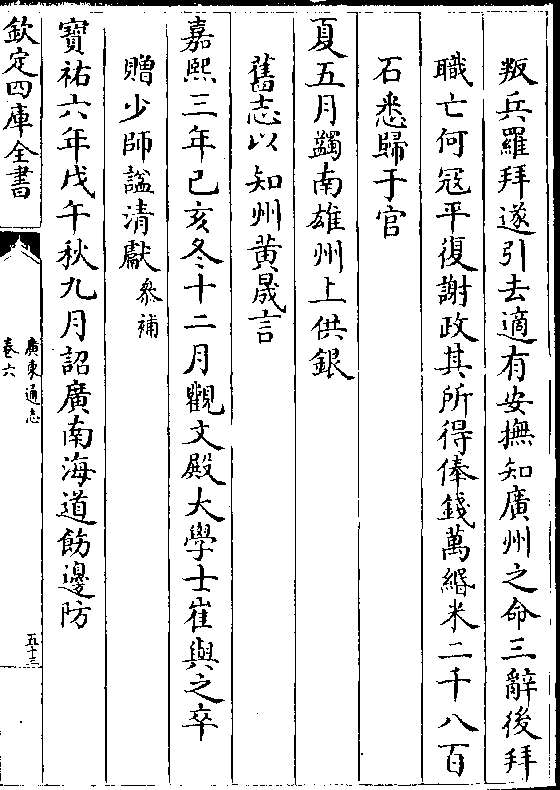 叛兵羅拜遂引去適有安撫知廣州之命三辭後拜
職亡何寇平復謝政其所得俸錢萬緡米二千八百
石悉歸于官
夏五月蠲南雄州上供銀
舊志以知州黄晟言
嘉熙三年己亥冬十二月觀文殿大學士崔與之卒
贈少師諡清獻參補
寶祐六年戊午秋九月詔廣南海道飭邊防
欽定四庫全書
廣東通志
卷六
五十三